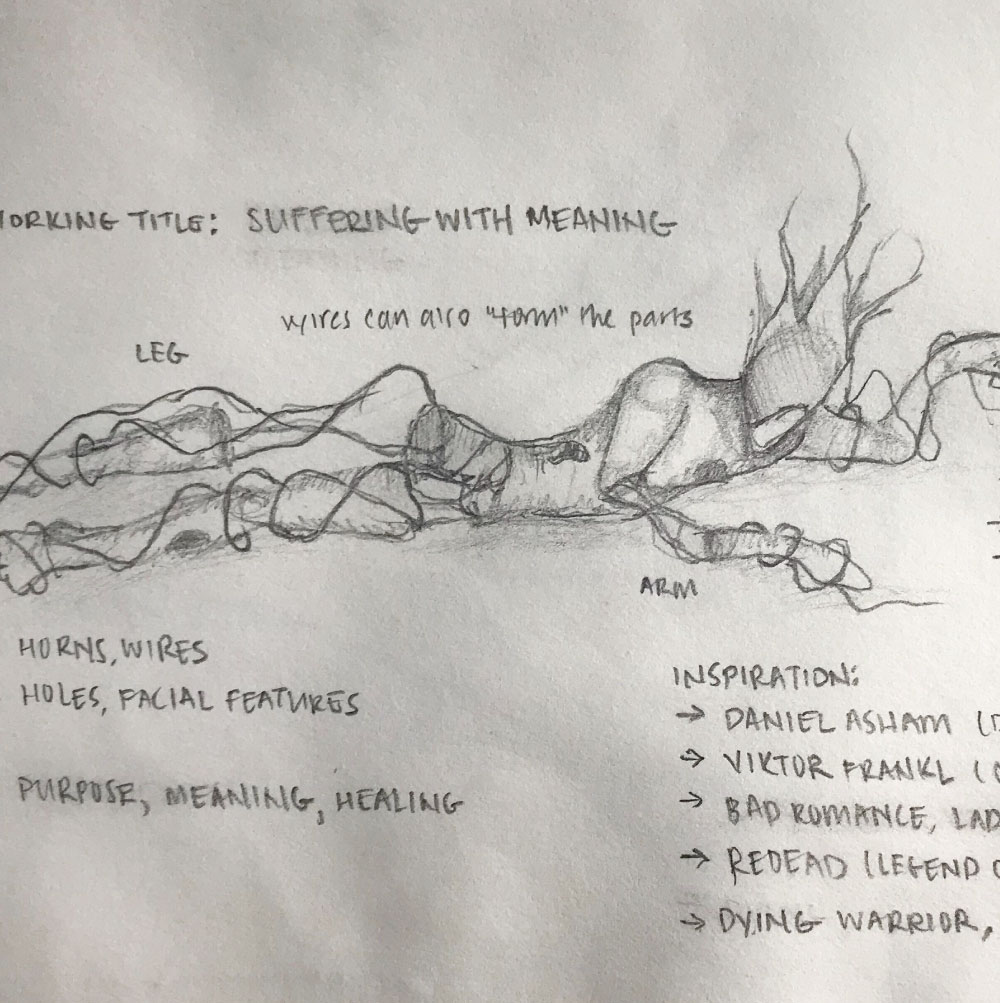 WORKING TITLE: SUFFERING WITH MEANING
wires can also "form" the parts
LEG
ARM
HORNS, WIRES
HOLES, FACIAL FEATURES
PURPOSE, MEANING, HEALING
INSPIRATION:
→ DANIEL ASHAM (
→ VIKTOR FRANKL (
→ BAD ROMANCE, LAD
→ REDEAD (LEGEND
→ DYING WARRIOR,